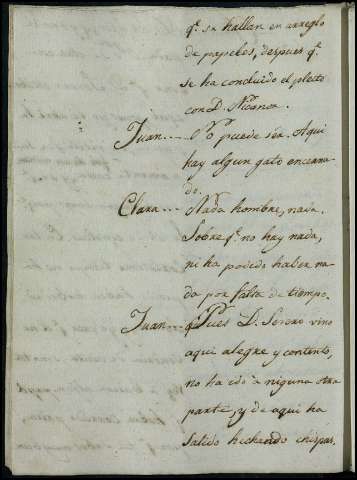 qᵉ. se hallan en arreglo
de papeles, despues qᵉ.
se ha concluido el pleito
con D. Nicanor.
Juan.... No puede séa. Aqui
hay algun gato encerra
do.
Clara... Nada hombre, nada.
Sobre qᵉ. no hay nada,
ni ha podido haber na
da por falta de tiempo.
Juan.... Pues D. Severo vino
aqui alegre y contento,
no ha ido a niguna otra
parte, y de aqui ha
salido hechando chispas.